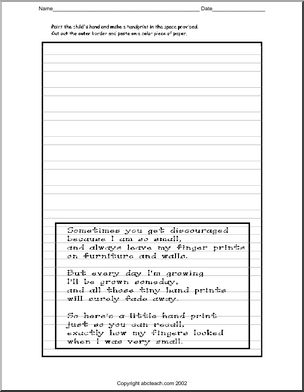 Name Date
Paint the child's hand and make a handprint in the space provided.
Cut out the outer border and paste on a color piece of paper.
Sometimes you get discouraged
because I am so small,
and always leave my finger prints
on furniture and walls.
But every day I'm growing
I'll be grown someday,
and all those tiny hand prints
will surely fade away.
So here's a little hand print
just so you can recall,
exactly how my fingers looked
when I was very small.
Copyright abcteach.com 2002